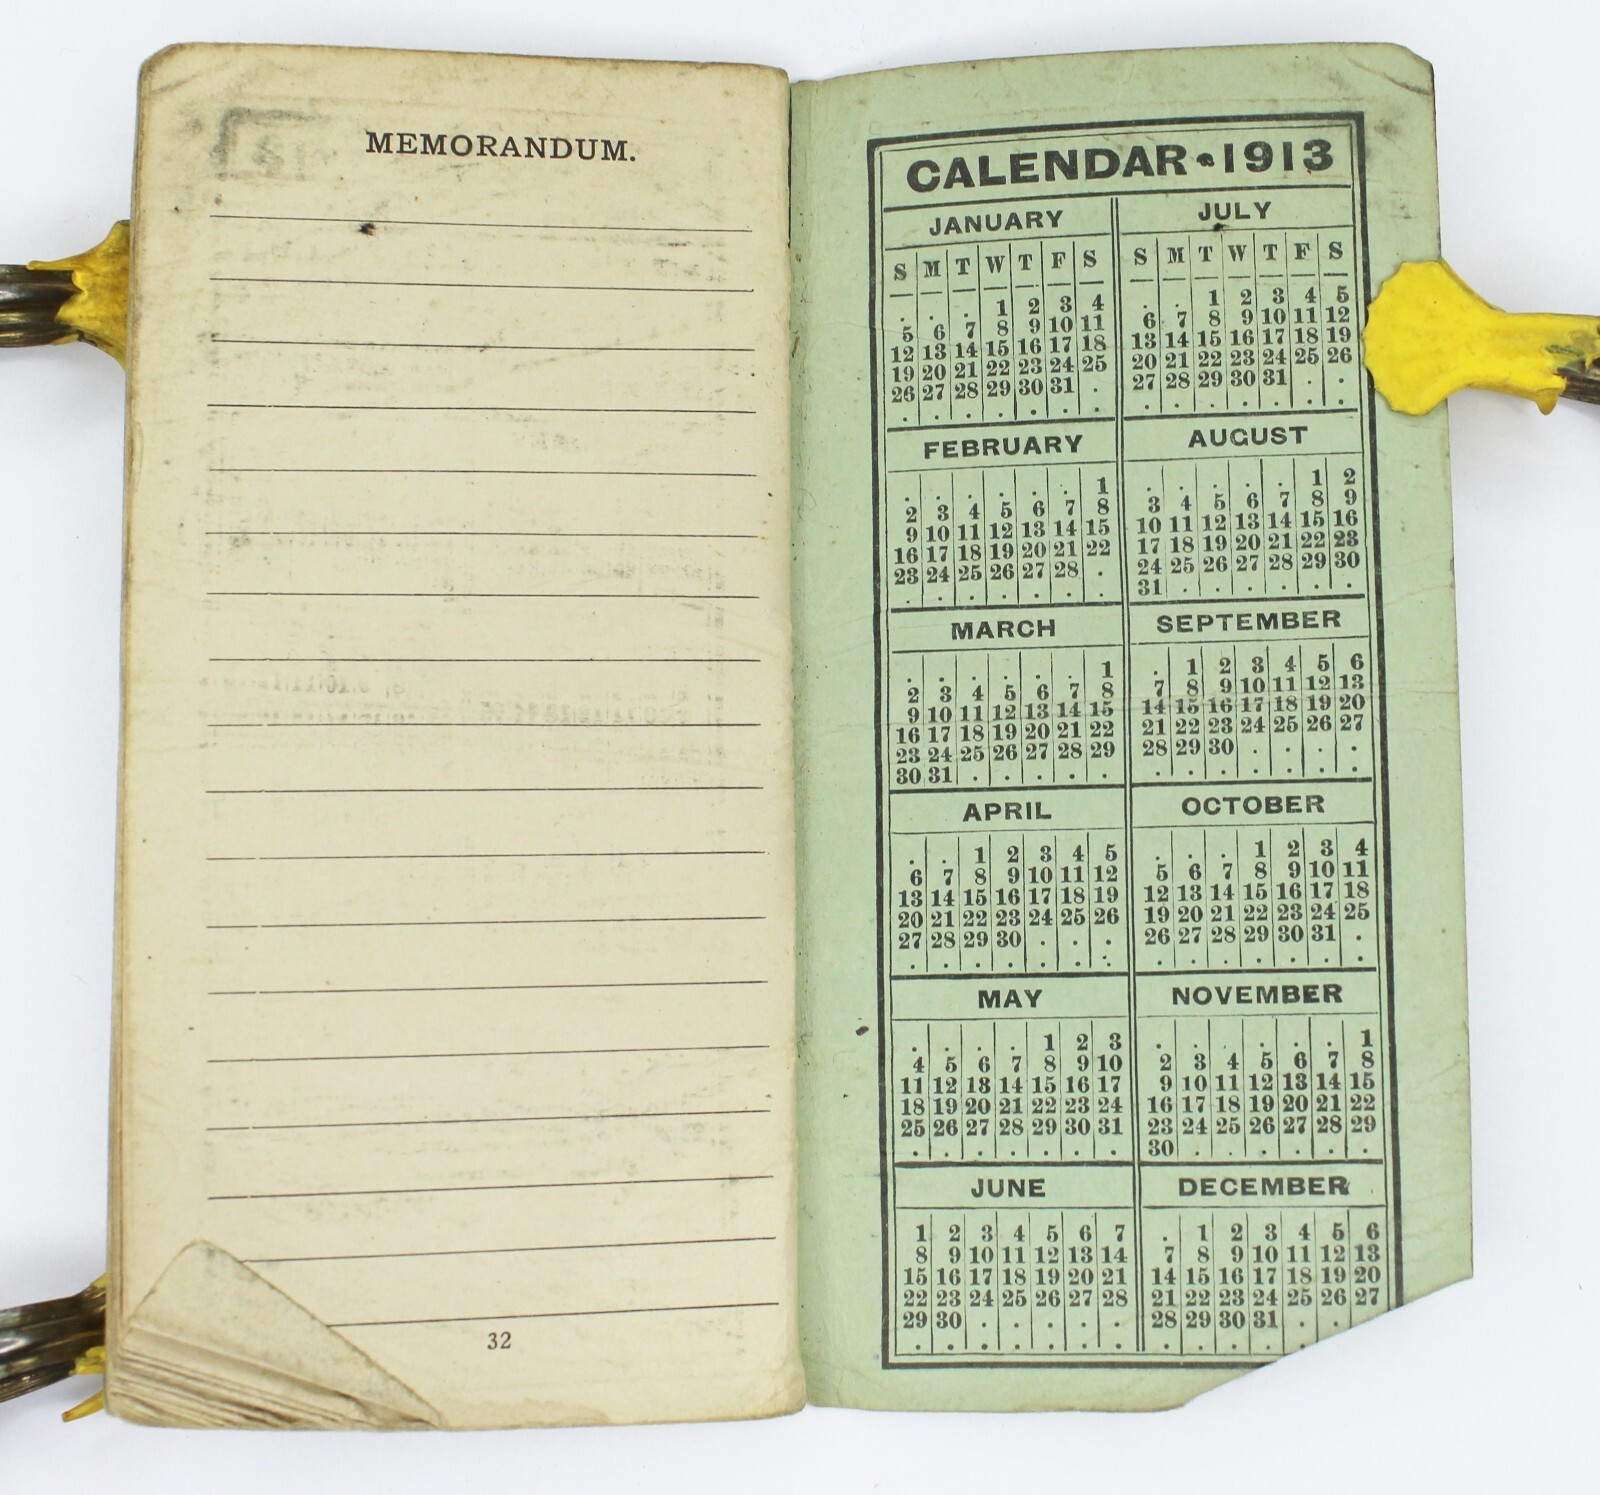 MEMORANDUM.
32
CALENDAR • 1913
JANUARY
S M T W T F S
. . . 1 2 3 4
5 6 7 8 9 10 11
12 13 14 15 16 17 18
19 20 21 22 23 24 25
26 27 28 29 30 31 .
. . . . . . .
FEBRUARY
. . . . . . 1
2 3 4 5 6 7 8
9 10 11 12 13 14 15
16 17 18 19 20 21 22
23 24 25 26 27 28 .
. . . . . . .
MARCH
. . . . . . 1
2 3 4 5 6 7 8
9 10 11 12 13 14 15
16 17 18 19 20 21 22
23 24 25 26 27 28 29
30 31 . . . . .
APRIL
. . 1 2 3 4 5
6 7 8 9 10 11 12
13 14 15 16 17 18 19
20 21 22 23 24 25 26
27 28 29 30 . . .
. . . . . . .
MAY
. . . . 1 2 3
4 5 6 7 8 9 10
11 12 13 14 15 16 17
18 19 20 21 22 23 24
25 26 27 28 29 30 31
. . . . . . .
JUNE
1 2 3 4 5 6 7
8 9 10 11 12 13 14
15 16 17 18 19 20 21
22 23 24 25 26 27 28
29 30 . . . . .
. . . . . . .
JULY
S M T W T F S
. . 1 2 3 4 5
6 7 8 9 10 11 12
13 14 15 16 17 18 19
20 21 22 23 24 25 26
27 28 29 30 31 . .
. . . . . . .
AUGUST
. . . . . 1 2
3 4 5 6 7 8 9
10 11 12 13 14 15 16
17 18 19 20 21 22 23
24 25 26 27 28 29 30
31 . . . . . .
SEPTEMBER
. 1 2 3 4 5 6
7 8 9 10 11 12 13
14 15 16 17 18 19 20
21 22 23 24 25 26 27
28 29 30 . . . .
. . . . . . .
OCTOBER
. . . 1 2 3 4
5 6 7 8 9 10 11
12 13 14 15 16 17 18
19 20 21 22 23 24 25
26 27 28 29 30 31 .
. . . . . . .
NOVEMBER
. . . . . . 1
2 3 4 5 6 7 8
9 10 11 12 13 14 15
16 17 18 19 20 21 22
23 24 25 26 27 28 29
30 . . . . . .
DECEMBER
. 1 2 3 4 5 6
7 8 9 10 11 12 13
14 15 16 17 18 19 20
21 22 23 24 25 26 27
28 29 30 31 . .
. . . . .